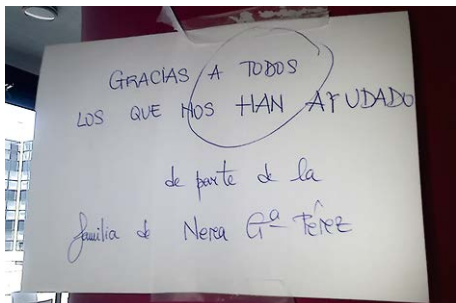 GRACIAS A TODOS
LOS QUE NOS HAN AYUDADO
de parte de la
familia de Nerea Gª Pérez